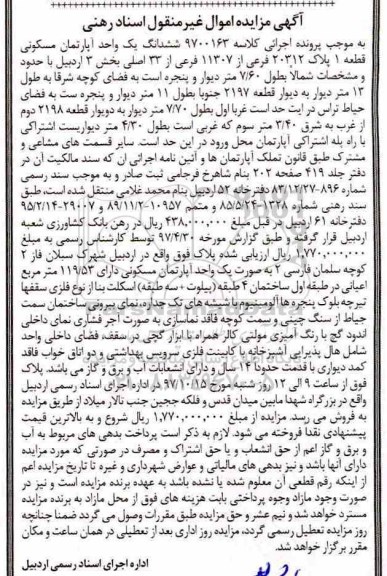 آگهی مزایده اموال غیرمنقول اسناد رهنی
به موجب پرونده اجرائی کلاسه ۹۷۰۰۱۶۳ ششدانگ یک واحد آپارتمان مسکونی
قطعه ۱ پلاک ۲۰۳۱۲ فرعی از ۱۱۳۰۷ فرعی از ۳۳ اصلی بخش ۳ اردبیل با حدود
و مشخصات شمالا بطول ۷/۶۰ متر دیوار و پنجره است به فضای کوچه شرقا به طول
۱۳ متر دیوار به دیوار قطعه ۲۱۹۷ جنوبا بطول ۱۱ متر دیوار و پنجره ست به فضای
حیاط تراس در ایت حد است غربا اول بطول ۷/۷۰ متر دیوار به دویوار قطعه ۲۱۹۸ دوم
از غرب به شرق ۳/۴۰ متر سوم که غربی است بطول ۴/۳۰ متر دیواریست اشتراکی
با راه پله اشتراکی آپارتمان محل ورود در این حد است. سایر قسمت های مشاعی و
مشترک طبق قانون تملک آپارتمان ها و آئین نامه اجرائی ان که سند مالکیت آن در
دفتر جلد ۴۱۹ صفحه ۲۰۲ بنام شاهرخ فرجامی ثبت صادر و به موجب سند رسمی
شماره ۸۹۶-۸۳/۱۲/۲۷ دفترخانه ۵۲ اردبیل بنام محمد غلامی منتقل شده است، طبق
سند رهنی شماره ۱۳۲۸-۸۵/۵/۲۴ و متمم ۱۰۹۵۷-۸۹/۱۱/۲ و ۲۹۰۰۷-۹۵/۲/۱۴
دفترخانه ۶۱ اردبیل در قبل مبلغ ۴۳۸,۰۰۰,۰۰۰ ریال در رهن بانک کشاورزی شعبه
اردبیل قرار گرفته و طبق گزارش مورخه ۹۷/۴/۳۰ توسط کارشناس رسمی به مبلغ
۱,۷۷۰,۰۰۰,۰۰۰ ریال ارزیابی شده پلاک فوق واقع در اردبیل شهرک سبلان فاز ۲
کوچه سلمان فارسی ۲ به صورت یک واحد آپارتمان مسکونی دارای ۱۱۹/۵۳ متر مربع
اعیانی در طبقه اول ساختمان ۴ طبقه (پیلوت +سه طبقه) اسکلت بنا از نوع فلزی سقفها
تیرچه بلوک پنجره ها آلومینیوم با شیشه های تک جداره، نمای بیرونی ساختمان سمت
حیاط از سنگ چینی و سمت کوچه فاقد نماسازی به صورت آجر فشاری نمای داخلی
اندود گچ با رنگ آمیزی مولتی کالر همراه با ابزار گچی در سقف، فضای داخلی واحد
شامل هال پذیرایی آشپزخانه با کابینت فلزی سرویس بهداشتی و دو اتاق خواب فاقد
کمد دیواری با قدمت حدودا ۱۴ سال و دارای انشعابات آب و برق و گاز می باشد. پلاک
فوق از ساعت ۹ الی ۱۲ روز شنبه مورخ ۹۷/۱۰/۱۵ در اداره اجرای اسناد رسمی اردبیل
واقع در بزرگراه شهدا مابین میدان قدس و فلکه ججین جنب تالار میلاد از طریق مزایده
به فروش می رسد. مزایده از مبلغ ۱,۷۷۰,۰۰۰,۰۰۰ ریال شروع و به بالاترین قیمت
پیشنهادی نقدا فروخته می شود. لازم به ذکر است پرداخت بدهی های مربوط به آب
و برق و گاز اعم از حق انشعاب و یا حق اشتراک و مصرف در صورتی که مورد مزایده
دارای آنها باشد و نیز بدهی های مالیاتی و عوارض شهرداری و غیره تا تاریخ مزایده اعم
از اینکه رقم قطعی آن معلوم شده یا نشده باشد به عهده برنده مزایده است و نیز در
صورت وجود مازاد وجوه پرداختی بابت هزینه های فوق از محل مازاد به برنده مزایده
مسترد خواهد شد و نیم عشر و حق مزایده طبق مقررات وصول می گردد ضمنا چنانچه
روز مزایده تعطیل رسمی گردد، مزایده روز اداری بعد از تعطیلی در همان ساعت و مکان
مقرر برگزار خواهد شد.
اداره اجرای اسناد رسمی اردبیل